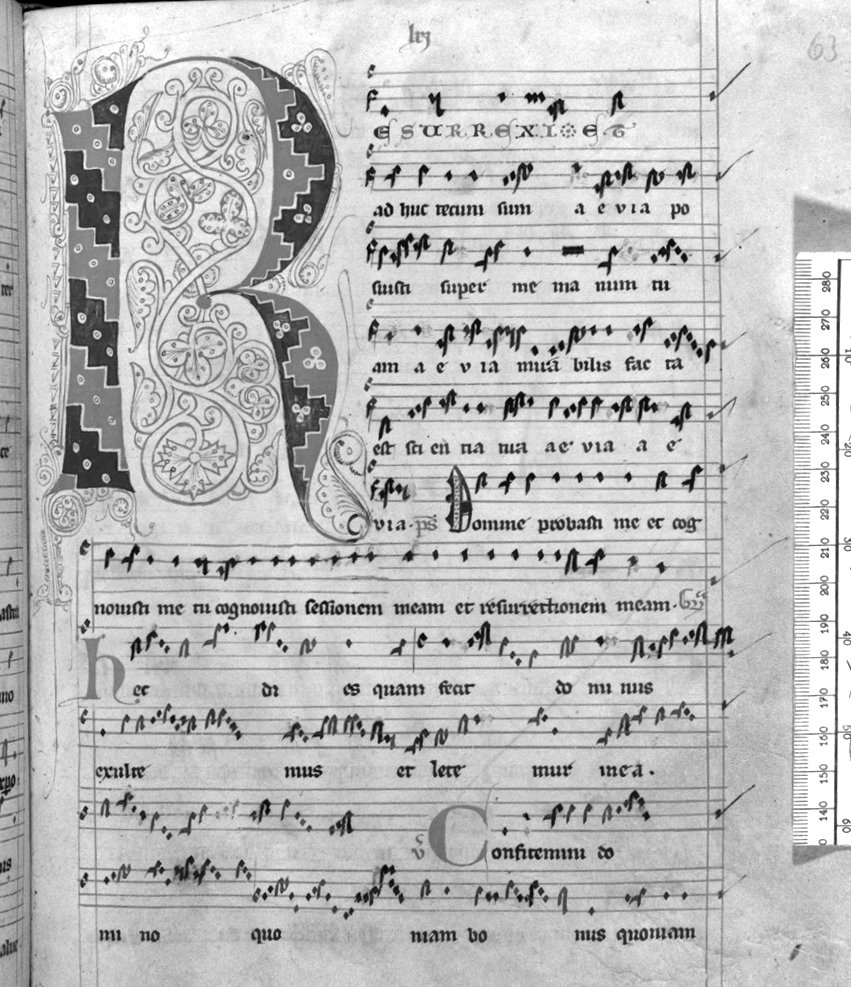 lxj
63
R ESURREXI. ET
ad huc tecum sum a e v i a po
suisti super me ma num tu
am a e v ia mira bilis fac ta
est sci en tia tua ae via a e
via. ps Domine probasti me et cog
nouisti me tu cognouisti sessionem meam et resurrectionem meam. Gr
hec di es quam fecit do mi nus
exulte mus et lete mur in ea.
v Confitemini do
mi no quo niam bo nus quoniam
280
270
260
250
240
230
220
210
200
190
180
170
160
150
140